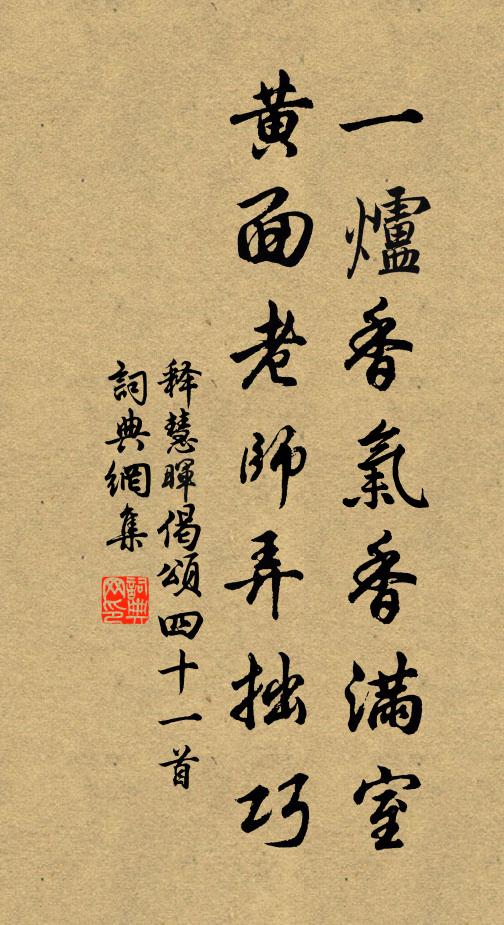 一爐香氣香滿室
黃面老師弄拙巧
释慧暉偈頌四十一首
詞典網集
詞典網印